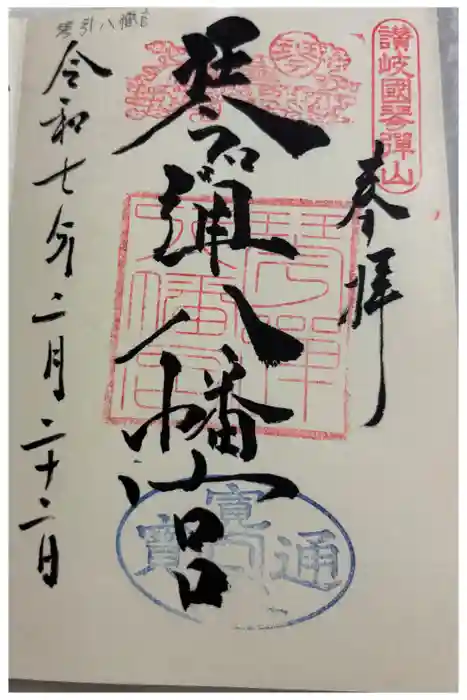 讃岐國琴彈山
奉拝
琴弾八幡宮
琴弾八幡宮
寛
通
寳
令和七年二月二十二日
琴引八幡宮